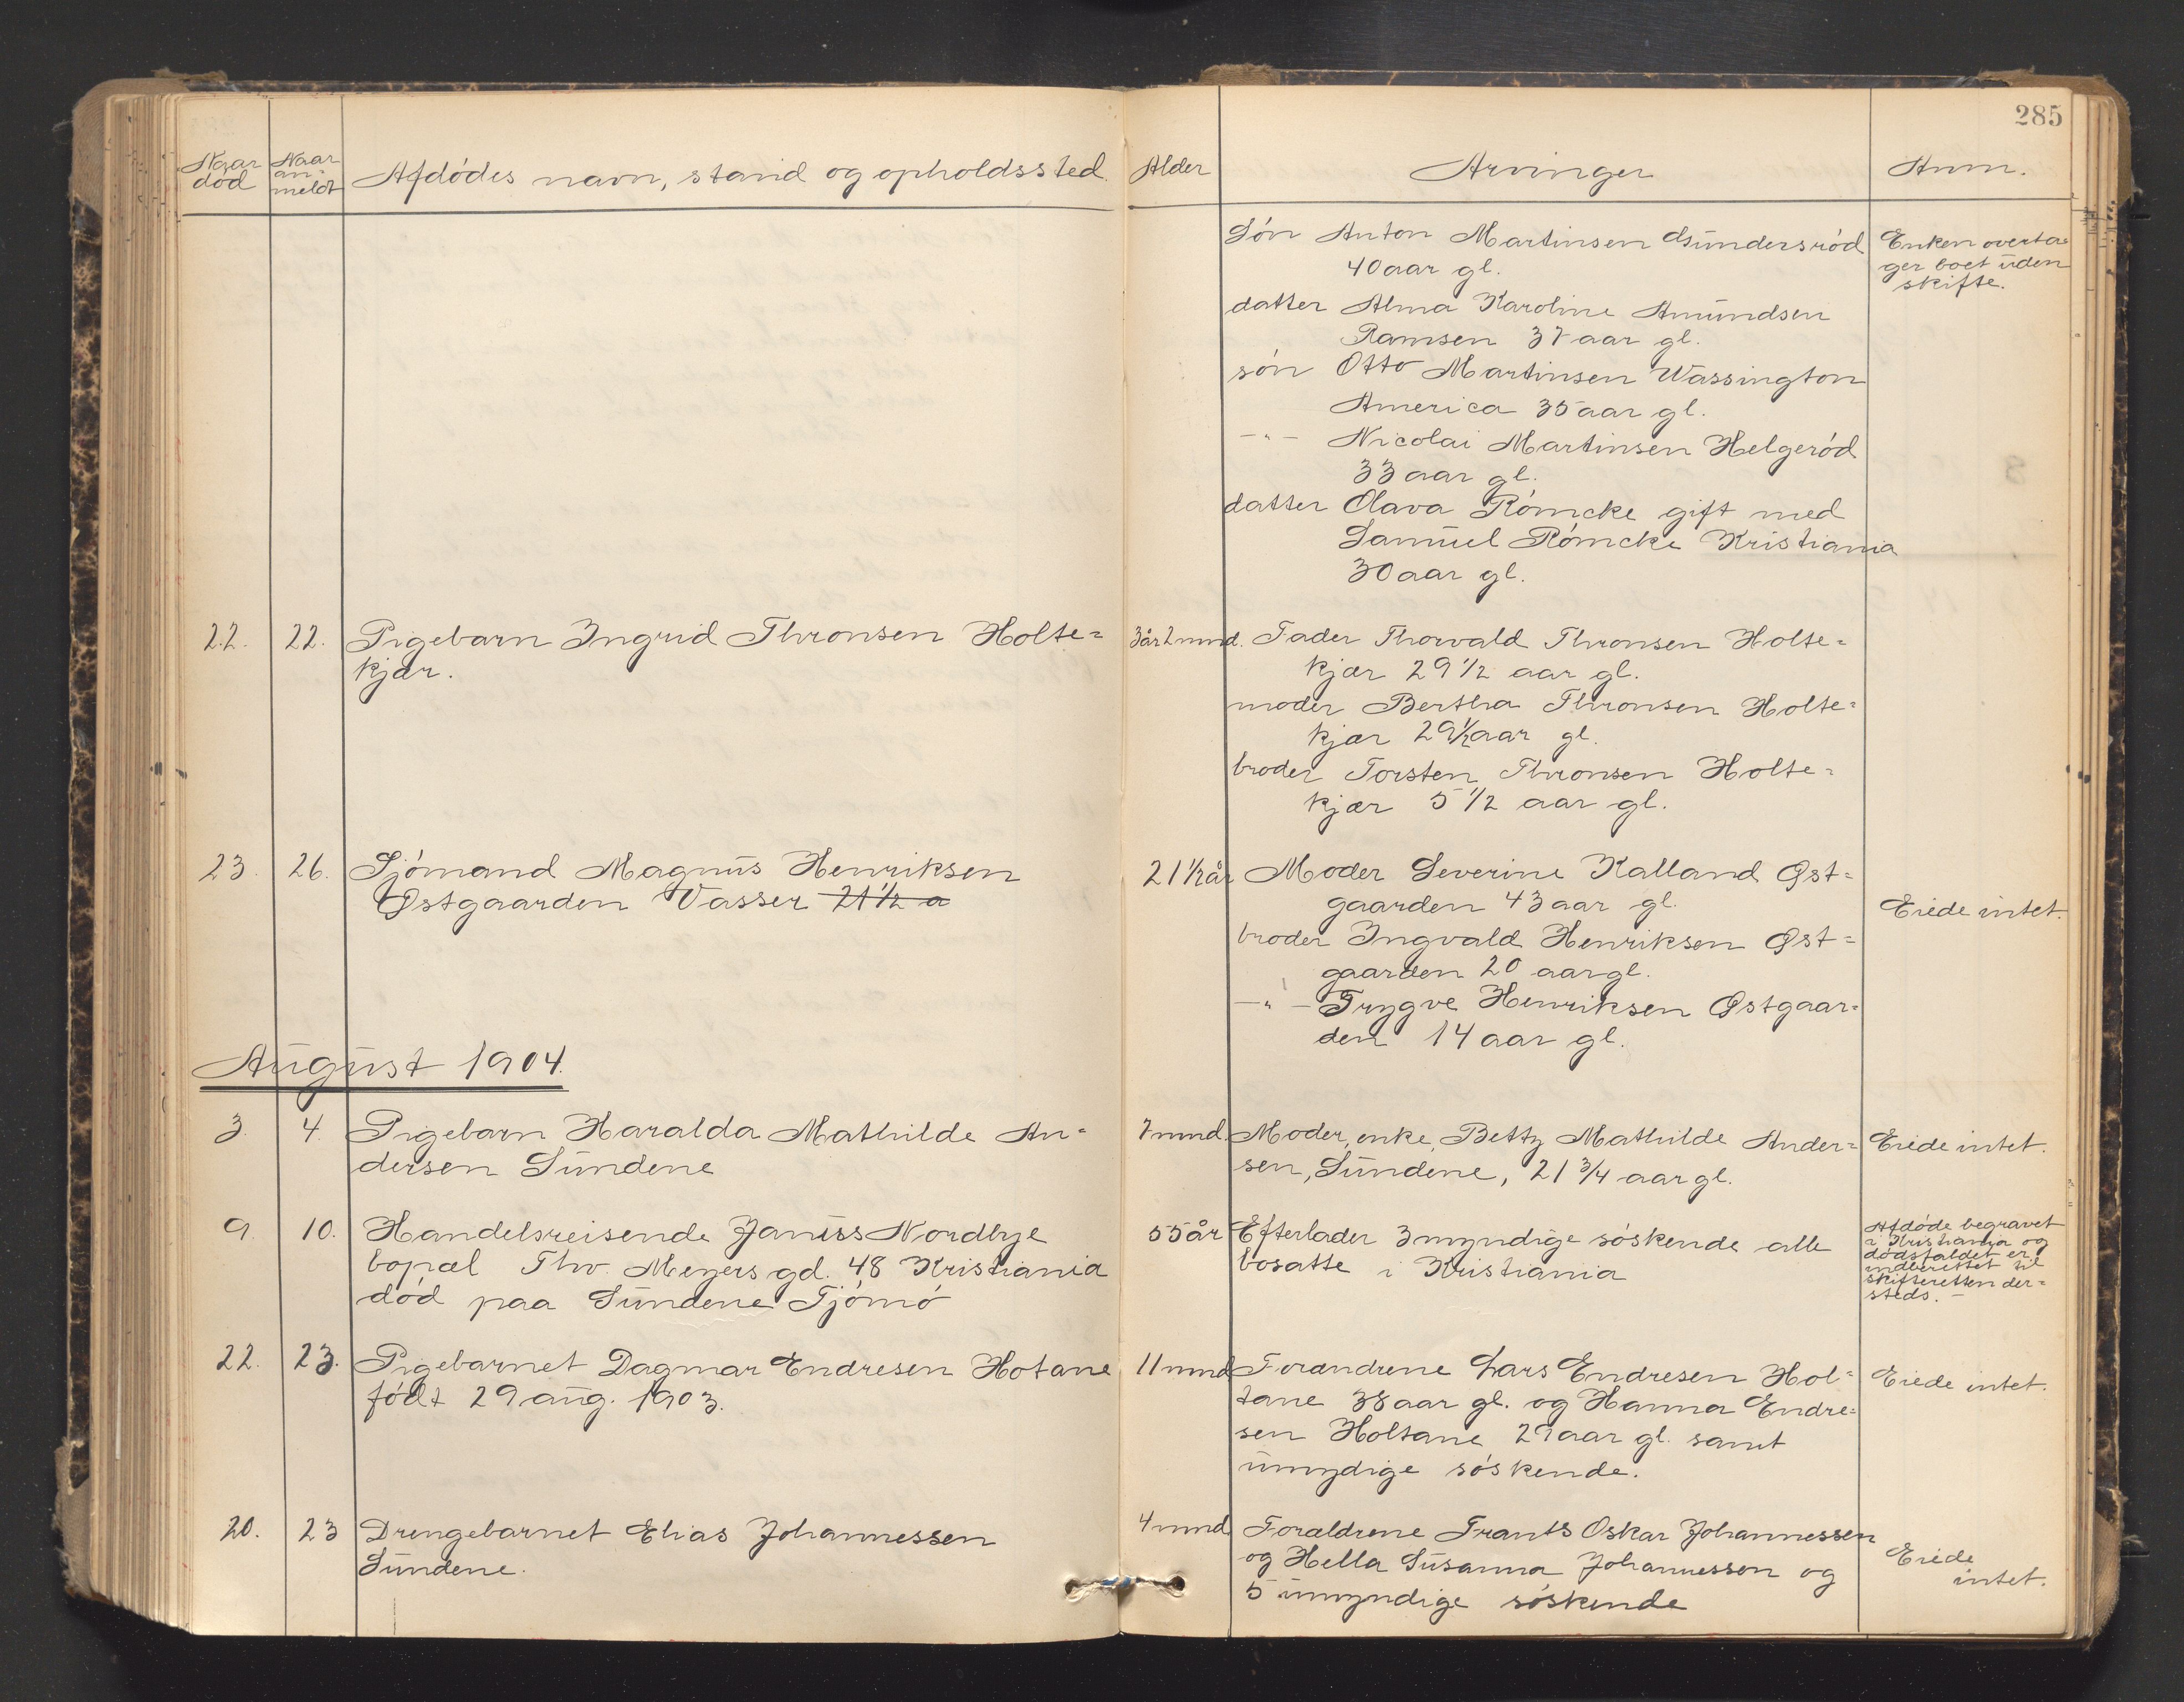 285
Naar død
Naar an-meldt
Afdødes navn, stand og opholdssted.
Alder
Arvinger
Anm.
Søn Anton Martinsen Gundersrød
40 aar gl.
datter Alma Karoline Amundsen
Ramsen 37 aar gl.
søn Otto Martinsen Wassington
America 35 aar gl.
-"- Nicolai Martinsen Helgerød
33 aar gl.
datter Olava Rømcke gift med
Samuel Rømcke Kristiania
30 aar gl.
Enken overta-
ger boet uden
skifte.
22. 22. Pigebarn Ingrid Thronsen Holte=
kjær.
3 år 2 mnd. Fader Thorvald Thronsen Holte=
kjær 29 1/2 aar gl.
moder Bertha Thronsen Holte=
kjær 29 1/2 aar gl.
broder Torsten Thronsen Holte=
kjær 5 1/2 aar gl.
23. 26. Sjømand Magnus Henriksen
Østgaarden Vasser 21 1/2 a
21 1/2 år Moder Severine Kalland Øst=
gaarden 43 aar gl.
broder Ingvald Henriksen Øst=
gaarden 20 aar gl.
-"- Trygve Henriksen Østgaar=
den 14 aar gl.
Eiede intet.
August 1904.
3. 4. Pigebarn Haralda Mathilde An=
dersen Sundene
7 mnd. Moder, enke, Betty Mathilde Ander=
sen, Sundene, 21 3/4 aar gl.
Eiede intet.
9. 10. Handelsreisende Janiss Nordbye
bopæl Thv. Meyers gd. 48 Kristiania
død paa Sundene Tjømø
55 år Efterlader 3 myndige søskende alle
bosatte i Kristiania
Afdøde begravet
i Kristiania og
dødsfaldet er
indberettet til
skifteretten der=
steds. -
22. 23. Pigebarnet Dagmar Endresen Hotane
født 29 aug. 1903.
11 mnd Forændrene Lars Endresen Hol=
tane 38 aar gl. og Hanna Endre=
sen Holtane 29 aar gl. samt
umydige søskende.
Eiede intet.
20. 23 Drengebarnet Elias Johannessen
Sundene.
4 mnd. Forældrene Frants Oskar Johannessen
og Hella Susanna Johannessen og
5 umyndige søskende
Eiede
intet.